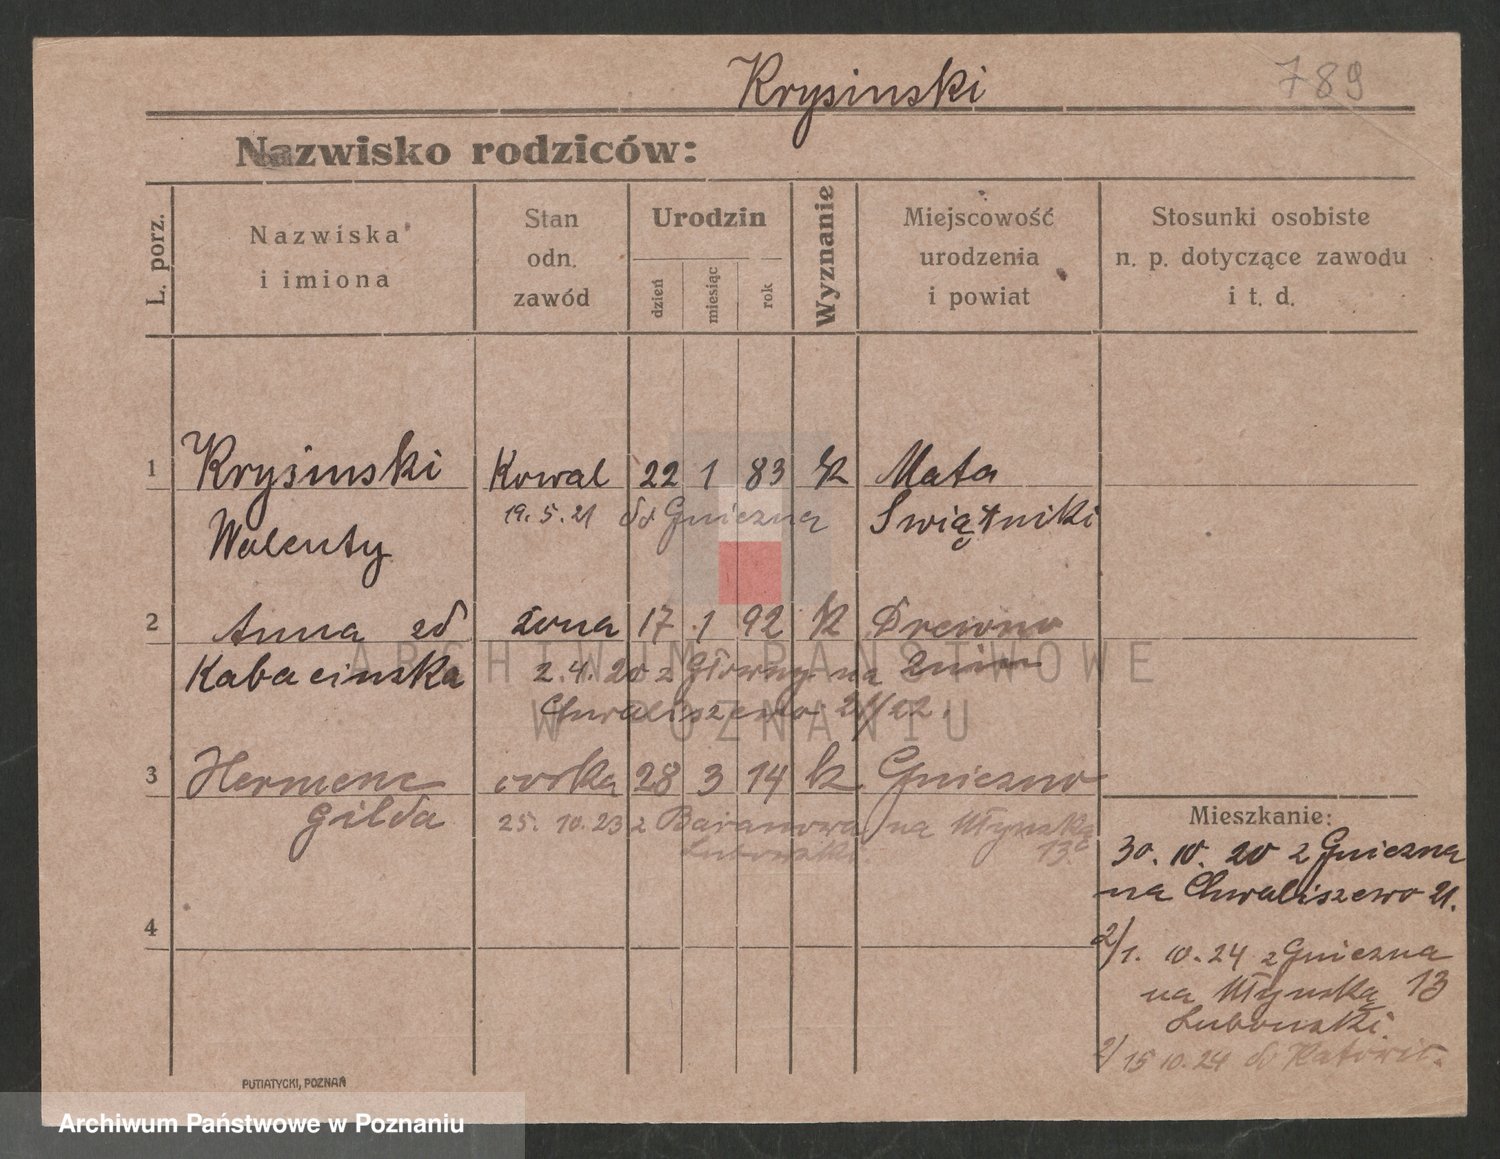 Krysinski
789
Nazwisko rodziców:
L. porz.
Nazwiska
i imiona
Stan
odn.
zawód
Urodzin
dzień
miesiąc
rok
Wyznanie
Miejscowość
urodzenia
i powiat
Stosunki osobiste
n. p. dotyczące zawodu
i t. d.
1 Krysinski Kowal 22 1 83 k Mała
Walenty 19. 5. 21 do Gniezna Swiątniki
2 Anna zd żona 17 1 92 k Drewno
Kabacinska 2. 4. 20 z Główny na Znin
Chwaliszewo 21/22.
3 Hermene corka 28 3 14 k Gniezno
gilda 25. 10. 23 z Baranowa na Młynską
13
Mieszkanie:
30. 10. 20 z Gniezna
na Chwaliszewo 21.
4
2/1. 10. 24 z Gniezna
na Młynską 13
Lubonski.
15 10. 24 do Katowic.
PUTIATYCKI, POZNAŃ
ARCHIWUM PAŃSTWOWE
W POZNANIU
Archiwum Państwowe w Poznaniu